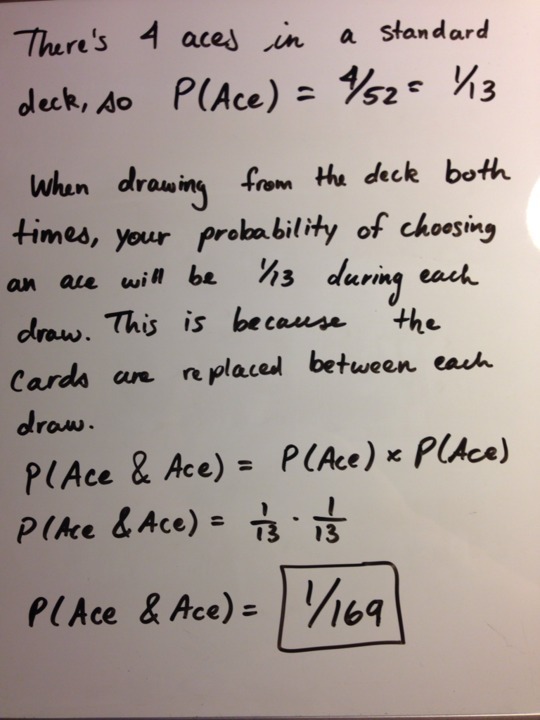 There's 4 aces in a standard
deck, so P(Ace) = 4/52 = 1/13
When drawing from the deck both
times, your probability of choosing
an ace will be 1/13 during each
draw. This is because the
cards are replaced between each
draw.
P(Ace & Ace) = P(Ace) × P(Ace)
P(Ace & Ace) = 1/13 · 1/13
P(Ace & Ace) = 1/169